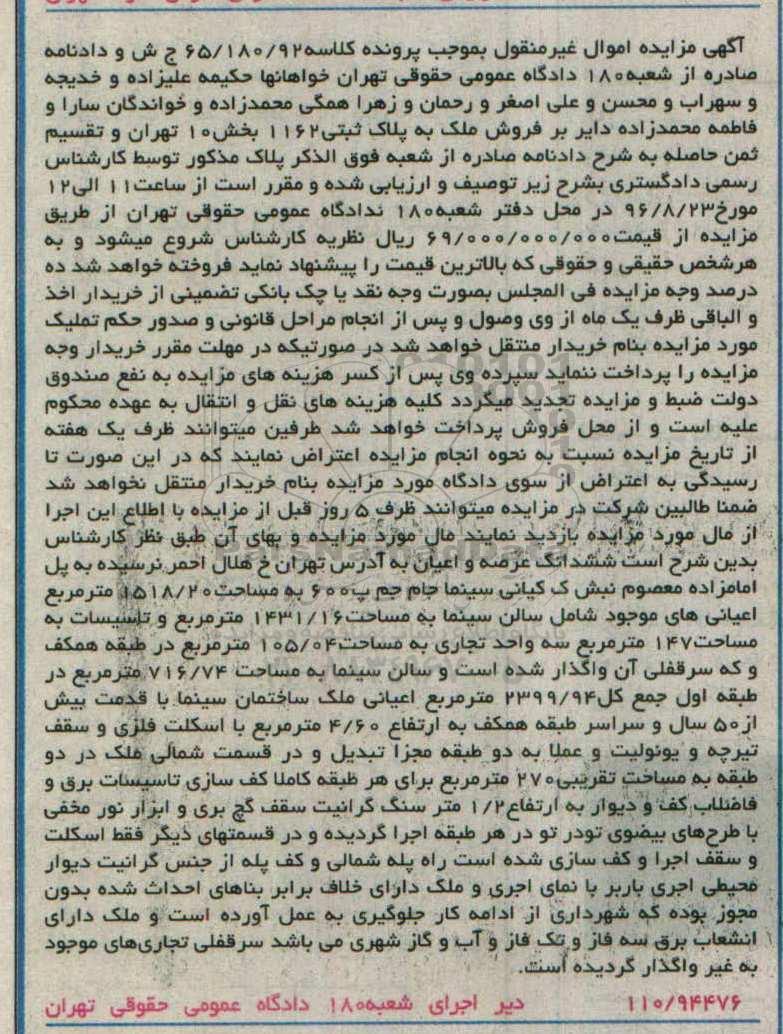 آگهی مزایده اموال غیرمنقول بموجب پرونده کلاسه۶۵/۱۸۰/۹۲ ج ش و دادنامه
صادره از شعبه۱۸۰ دادگاه عمومی حقوقی تهران خواهانها حکیمه علیزاده و خدیجه
و سهراب و محسن و علی اصغر و رحمان و زهرا همگی محمدزاده و خواندگان سارا و
فاطمه محمدزاده دایر بر فروش ملک به پلاک ثبتی۱۱۶۲ بخش۱۰ تهران و تقسیم
ثمن حاصله به شرح دادنامه صادره از شعبه فوق الذکر پلاک مذکور توسط کارشناس
رسمی دادگستری بشرح زیر توصیف و ارزیابی شده و مقرر است از ساعت۱۱ الی۱۲
مورخ۹۶/۸/۲۳ در محل دفتر شعبه۱۸۰ ندادگاه عمومی حقوقی تهران از طریق
مزایده از قیمت۶۹/۰۰۰/۰۰۰/۰۰۰ ریال نظریه کارشناس شروع میشود و به
هرشخص حقیقی و حقوقی که بالاترین قیمت را پیشنهاد نماید فروخته خواهد شد ده
درصد وجه مزایده فی المجلس بصورت وجه نقد یا چک بانکی تضمینی از خریدار اخذ
و الباقی ظرف یک ماه از وی وصول و پس از انجام مراحل قانونی و صدور حکم تملیک
مورد مزایده بنام خریدار منتقل خواهد شد در صورتیکه در مهلت مقرر خریدار وجه
مزایده را پرداخت ننماید سپرده وی پس از کسر هزینه های مزایده به نفع صندوق
دولت ضبط و مزایده تجدید میگردد کلیه هزینه های نقل و انتقال به عهده محکوم
علیه است و از محل فروش پرداخت خواهد شد طرفین میتوانند ظرف یک هفته
از تاریخ مزایده نسبت به نحوه انجام مزایده اعتراض نمایند که در این صورت تا
رسیدگی به اعتراض از سوی دادگاه مورد مزایده بنام خریدار منتقل نخواهد شد
ضمنا طالبین شرکت در مزایده میتوانند ظرف ۵ روز قبل از مزایده با اطلاع این اجرا
از مال مورد مزایده بازدید نمایند مال مورد مزایده و بهای آن طبق نظر کارشناس
بدین شرح است ششدانگ عرصه و اعیان به آدرس تهران خ هلال احمر نرسیده به پل
امامزاده معصوم نبش ک کیانی سینما جام جم پ۶۰۰ به مساحت۱۵۱۸/۲۰ مترمربع
اعیانی های موجود شامل سالن سینما به مساحت۱۴۳۱/۱۶ مترمربع و تاسیسات به
مساحت۱۴۷ مترمربع سه واحد تجاری به مساحت۱۰۵/۰۴ مترمربع در طبقه همکف
و که سرقفلی آن واگذار شده است و سالن سینما به مساحت ۷۱۶/۷۴ مترمربع در
طبقه اول جمع کل۲۳۹۹/۹۴ مترمربع اعیانی ملک ساختمان سینما با قدمت بیش
از۵۰ سال و سراسر طبقه همکف به ارتفاع ۴/۶۰ مترمربع با اسکلت فلزی و سقف
تیرچه و یونولیت و عملا به دو طبقه مجزا تبدیل و در قسمت شمالی ملک در دو
طبقه به مساحت تقریبی۲۷۰ مترمربع برای هر طبقه کاملا کف سازی تاسیسات برق و
فاضلاب کف و دیوار به ارتفاع۱/۲ متر سنگ گرانیت سقف گچ بری و ابزار نور مخفی
با طرح‌های بیضوی تودر تو در هر طبقه اجرا گردیده و در قسمتهای دیگر فقط اسکلت
و سقف اجرا و کف سازی شده است راه پله شمالی و کف پله از جنس گرانیت دیوار
محیطی اجری باربر با نمای اجری و ملک دارای خلاف برابر بناهای احداث شده بدون
مجوز بوده که شهرداری از ادامه کار جلوگیری به عمل آورده است و ملک دارای
انشعاب برق سه فاز و تک فاز و آب و گاز شهری می باشد سرقفلی تجاری‌های موجود
به غیر واگذار گردیده است.
۱۱۰/۹۴۴۷۶ دیر اجرای شعبه۱۸۰ دادگاه عمومی حقوقی تهران